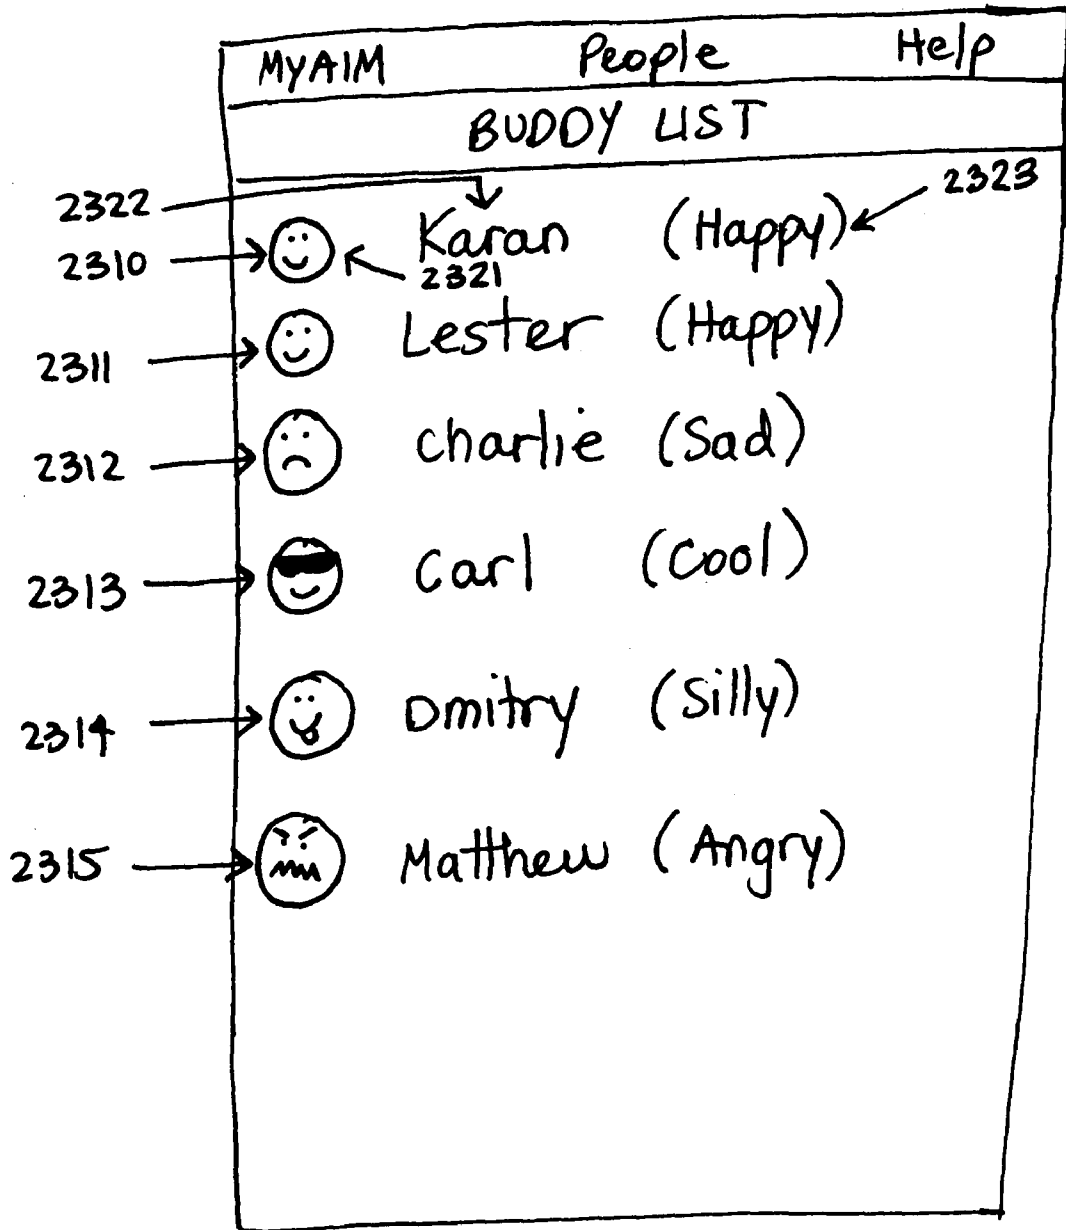 MyAIM People Help
BUDDY LIST
2322 Karan (Happy) 2323
2310 2321
2311 Lester (Happy)
2312 charlie (Sad)
2313 Carl (Cool)
2314 Dmitry (Silly)
2315 Matthew (Angry)